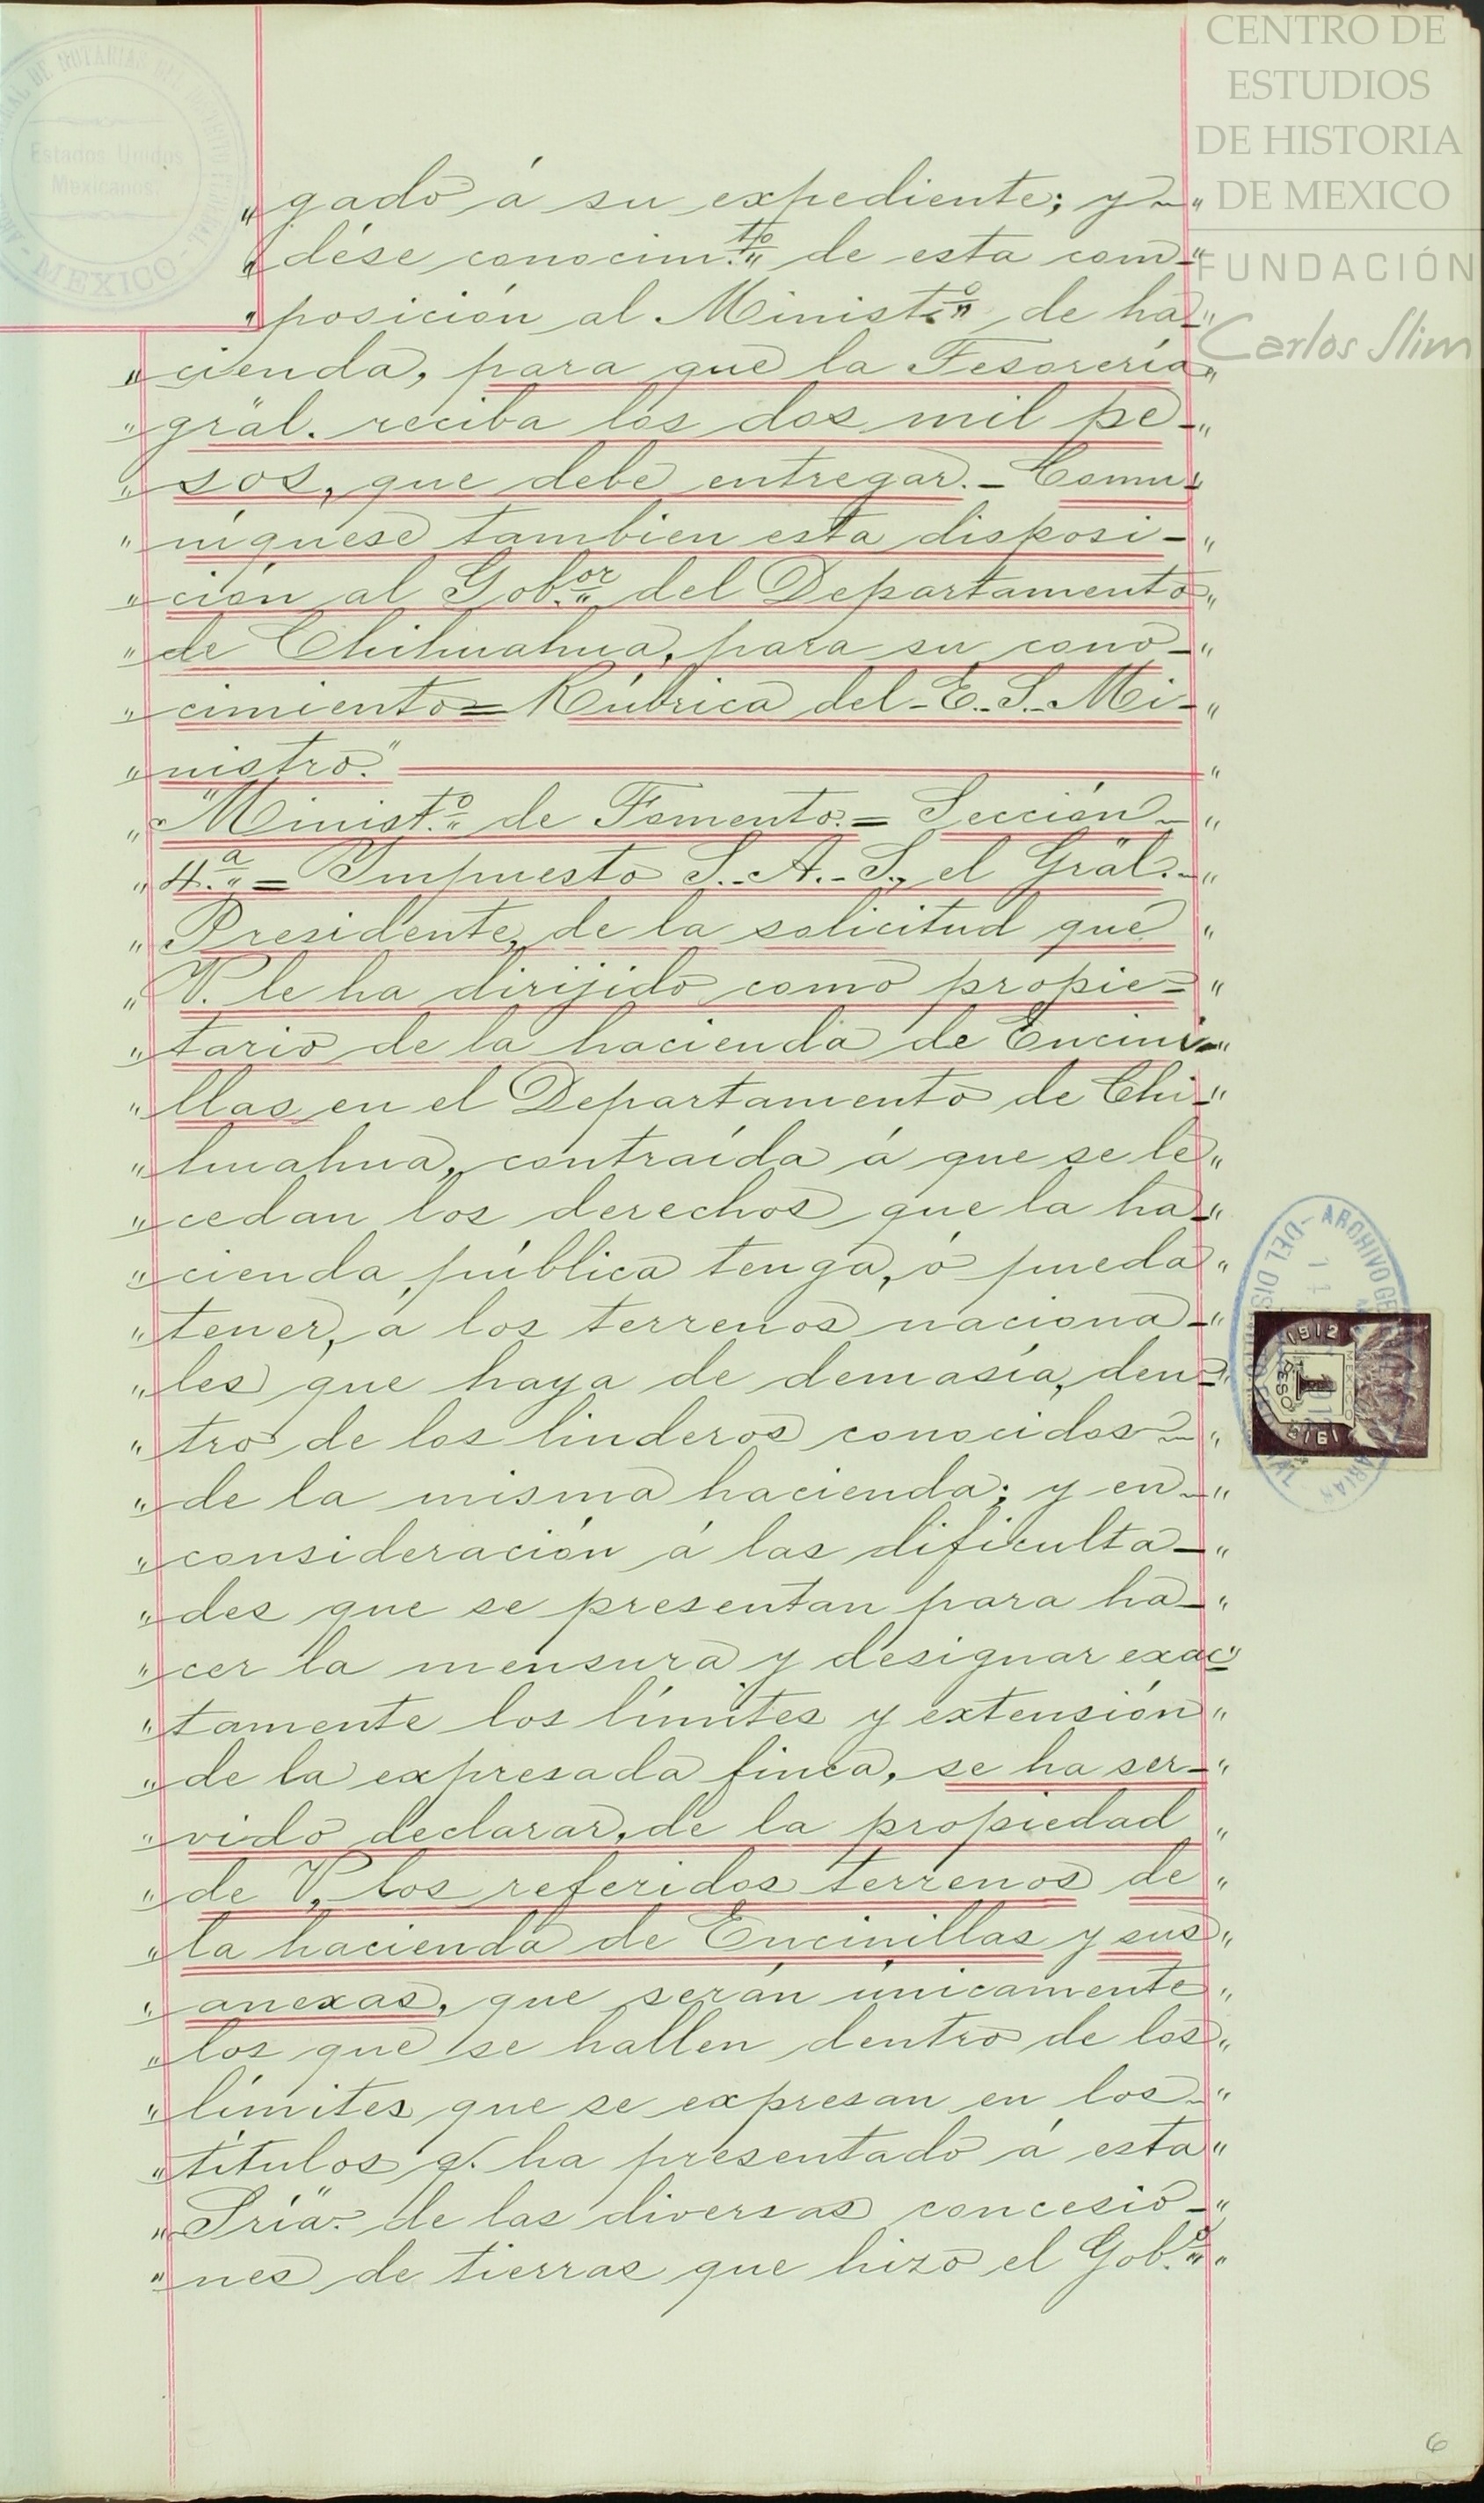 CENTRO DE
ESTUDIOS
DE HISTORIA
DE MEXICO
FUNDACIÓN
Carlos Slim
Estados Unidos
Mexicanos.
MEXICO
„gado á su expediente; y „
„dése conocim.to de esta com-„
„posición al Minist.o de ha-„
„cienda, para que la Tesorería„
„gräl. reciba los dos mil pe-„
„sos, que debe entregar.- Comu-
„níquese tambien esta disposi-„
„ción al Gob.or del Departamento„
„de Chihuahua, para su cono-„
„cimiento= Rúbrica del E. S. Mi-„
„nistro." „
„"Minist.o de Fomento.= Sección „
„4.a = Impuesto S. A. S., el Gräl.-„
„Presidente, de la solicitud que „
„V. le ha dirijido como propie- „
„tario de la hacienda de Encini-„
„llas en el Departamento de Chi-„
„huahua, contraída á que se le„
„cedan los derechos que la ha-„
„cienda pública tenga, ó pueda„
„tener, a los terrenos naciona-„
„les que haya de demasía, den-„
„tro de los linderos conocidos „
„de la misma hacienda; y en „
„consideración á las dificulta-„
„des que se presentan para ha-„
„cer la mensura y designar exac-„
„tamente los límites y extensión„
„de la expresada finca, se ha ser-„
„vido declarar, de la propiedad „
„de V, los referidos terrenos de „
„la hacienda de Encinillas y sus„
„anexas, que serán únicamente„
„los que se hallen dentro de los„
„límites que se expresan en los „
„títulos q. ha presentado á esta„
„Sría. de las diversas concesio-„
„nes de tierras que hizo el Gob.o„
ARCHIVO GE
1912
MEXICO
1
PESO
1913
6